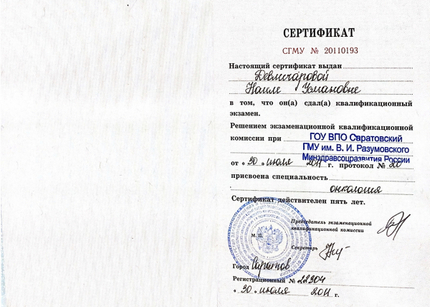 СЕРТИФИКАТ
СГМУ № 20110193
Настоящий сертификат выдан
Девличаровой
Наиле Усмановне
в том, что он(а) сдал(а) квалификационный
экзамен.
Решением экзаменационной квалификационной
комиссии при ГОУ ВПО Саратовский
ГМУ им. В. И. Разумовского
Минздравсоцразвития России
от « 30 » июля 2011 г. протокол №
присвоена специальность
онкология
Сертификат действителен пять лет.
Председатель экзаменационной
квалификационной комиссии
М. П.
Секретарь
Город Саратов
Регистрационный № 22304
« 30 » июля 2011 г.